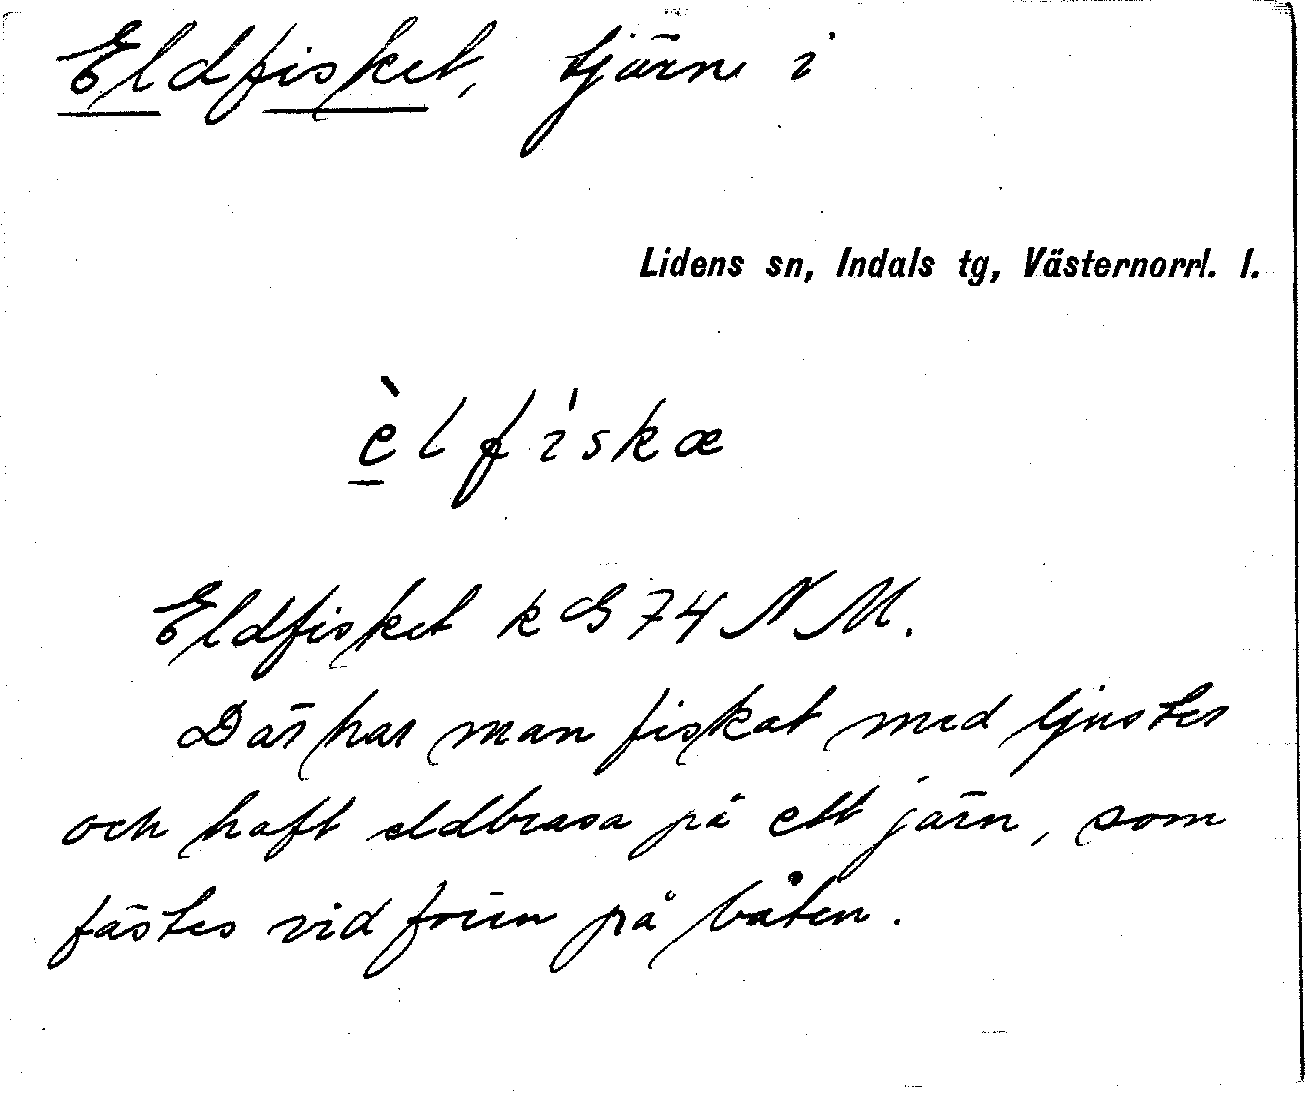 Eldfisket, tjärn i
Lidens sn, Indals tg, Västernorrl. l.
èlfiskæ
Eldfisket k G 74 N M.
Där har man fiskat med ljuster
och haft eldbrasa på ett järn, som
fästes vid fören på båten.